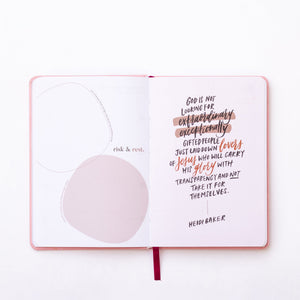 risk & rest.
GOD IS NOT
LOOKING FOR
extraordinary
exceptionally
GIFTED PEOPLE
JUST LAID DOWN lovers
OF Jesus WHO WILL CARRY
HIS glory WITH
TRANSPARENCY AND NOT
TAKE IT FOR
THEMSELVES.
HEIDI BAKER